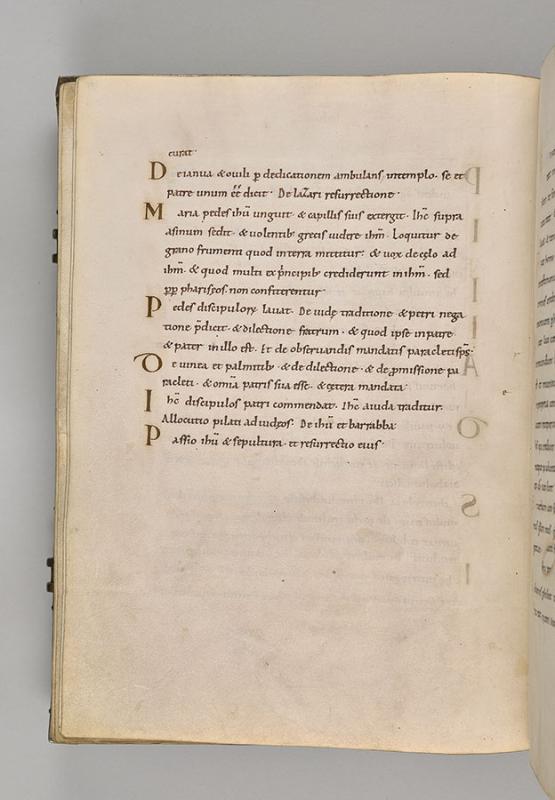 curat·
De ianua & ouili p̱ dedicationem ambulans in templo· se et
patre unum eē̄ dicit· De lazari resurrectione·
Maria pedes ihū unguit· & capillis suis extergit· Ihc̄ supra
asinum sedit· & uolentib; grecis uidere ihm̄· Loquitur de
grano frumenti quod in terra mittitur· & uox de cęlo ad
ihm̄· & quod multi ex p̄ncipib; crediderunt in ihm̄· sed
pp̱ pharisęos non confiterentur·
Pedes discipuloꝝ lauat· De iudę traditione & petri nega
tione p̄dicit· & dilectione fratrum· & quod ipse in patre
& pater in illo est· Et de obseruandis mandatis paracleti sp̄s·
De uinea et palmitib; & de dilectione· & de ꝓmissione pa
racleti· & omīa patris sua esse· & cętera mandata·
Ihc̄ discipulos patri commendat· Ihc̄ a iuda traditur·
Allocutio pilati ad iudęos· De ihū et barrabba·
Passio ihū & sepultura· et resurrectio eius·